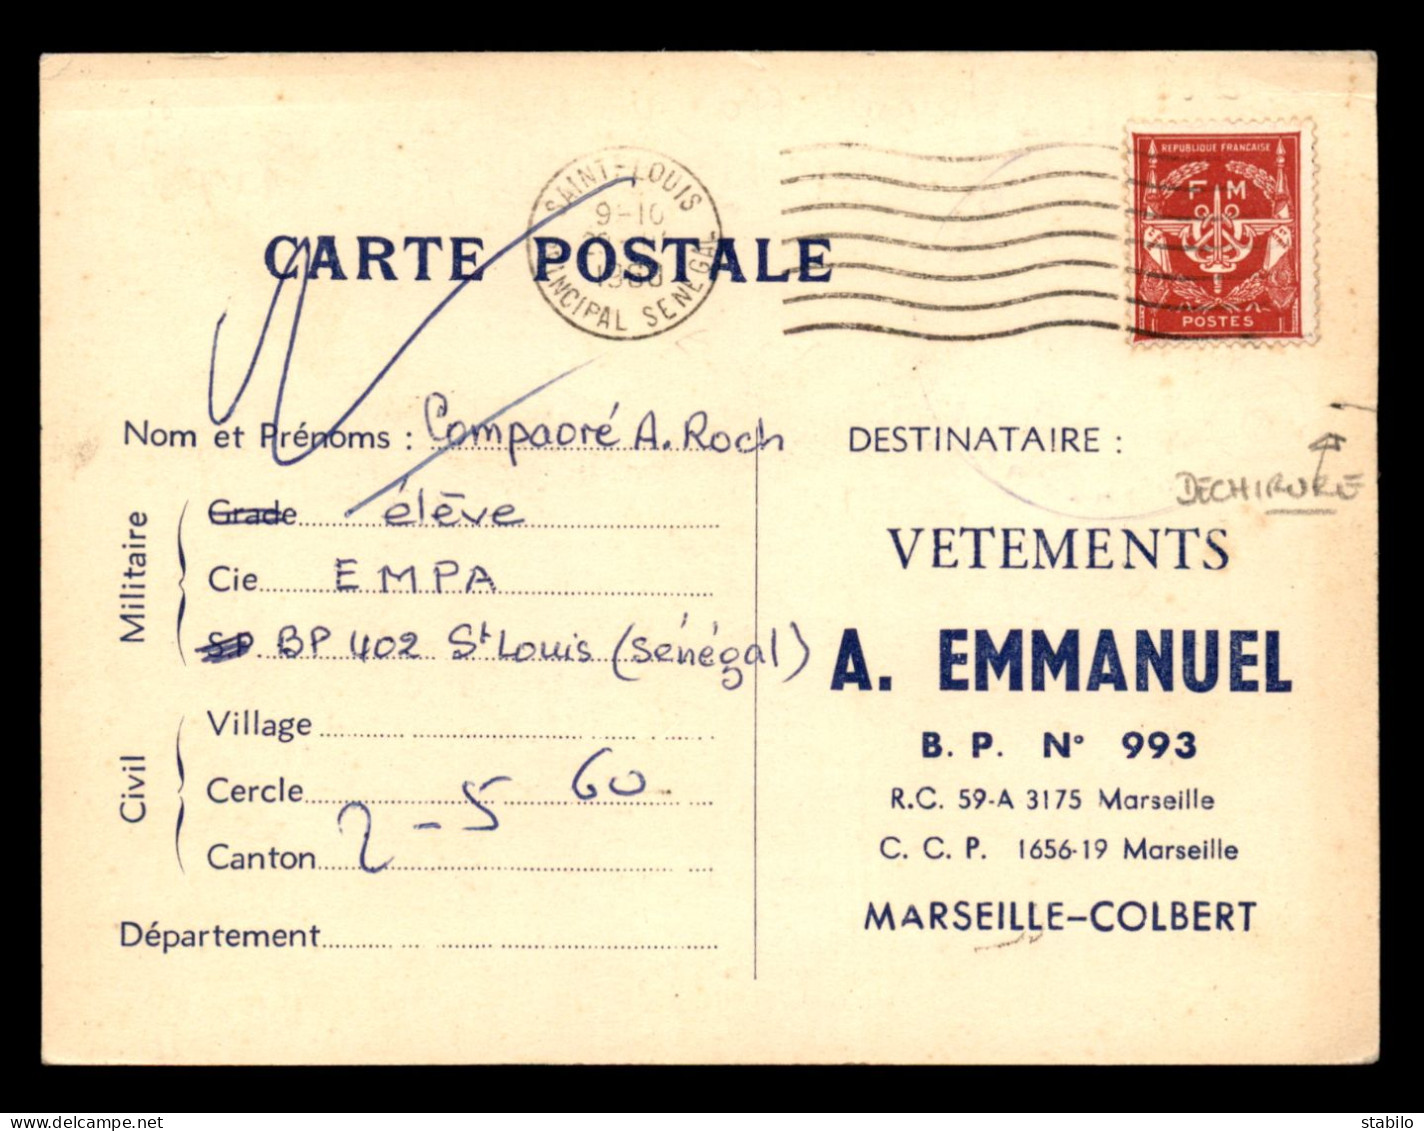 REPUBLIQUE FRANCAISE
F M
POSTES
SAINT-LOUIS
9-10
PRINCIPAL SENEGAL
CARTE POSTALE
Nom et Prénoms : Compaoré A. Roch
Grade élève
Cie EMPA
SP BP 402 St Louis (Sénégal)
Militaire
Village
Cercle
Canton
2-5 60
Civil
Département
DESTINATAIRE :
DECHIRURE
VETEMENTS
A. EMMANUEL
B. P. N° 993
R.C. 59-A 3175 Marseille
C. C. P. 1656-19 Marseille
MARSEILLE-COLBERT
stabilo